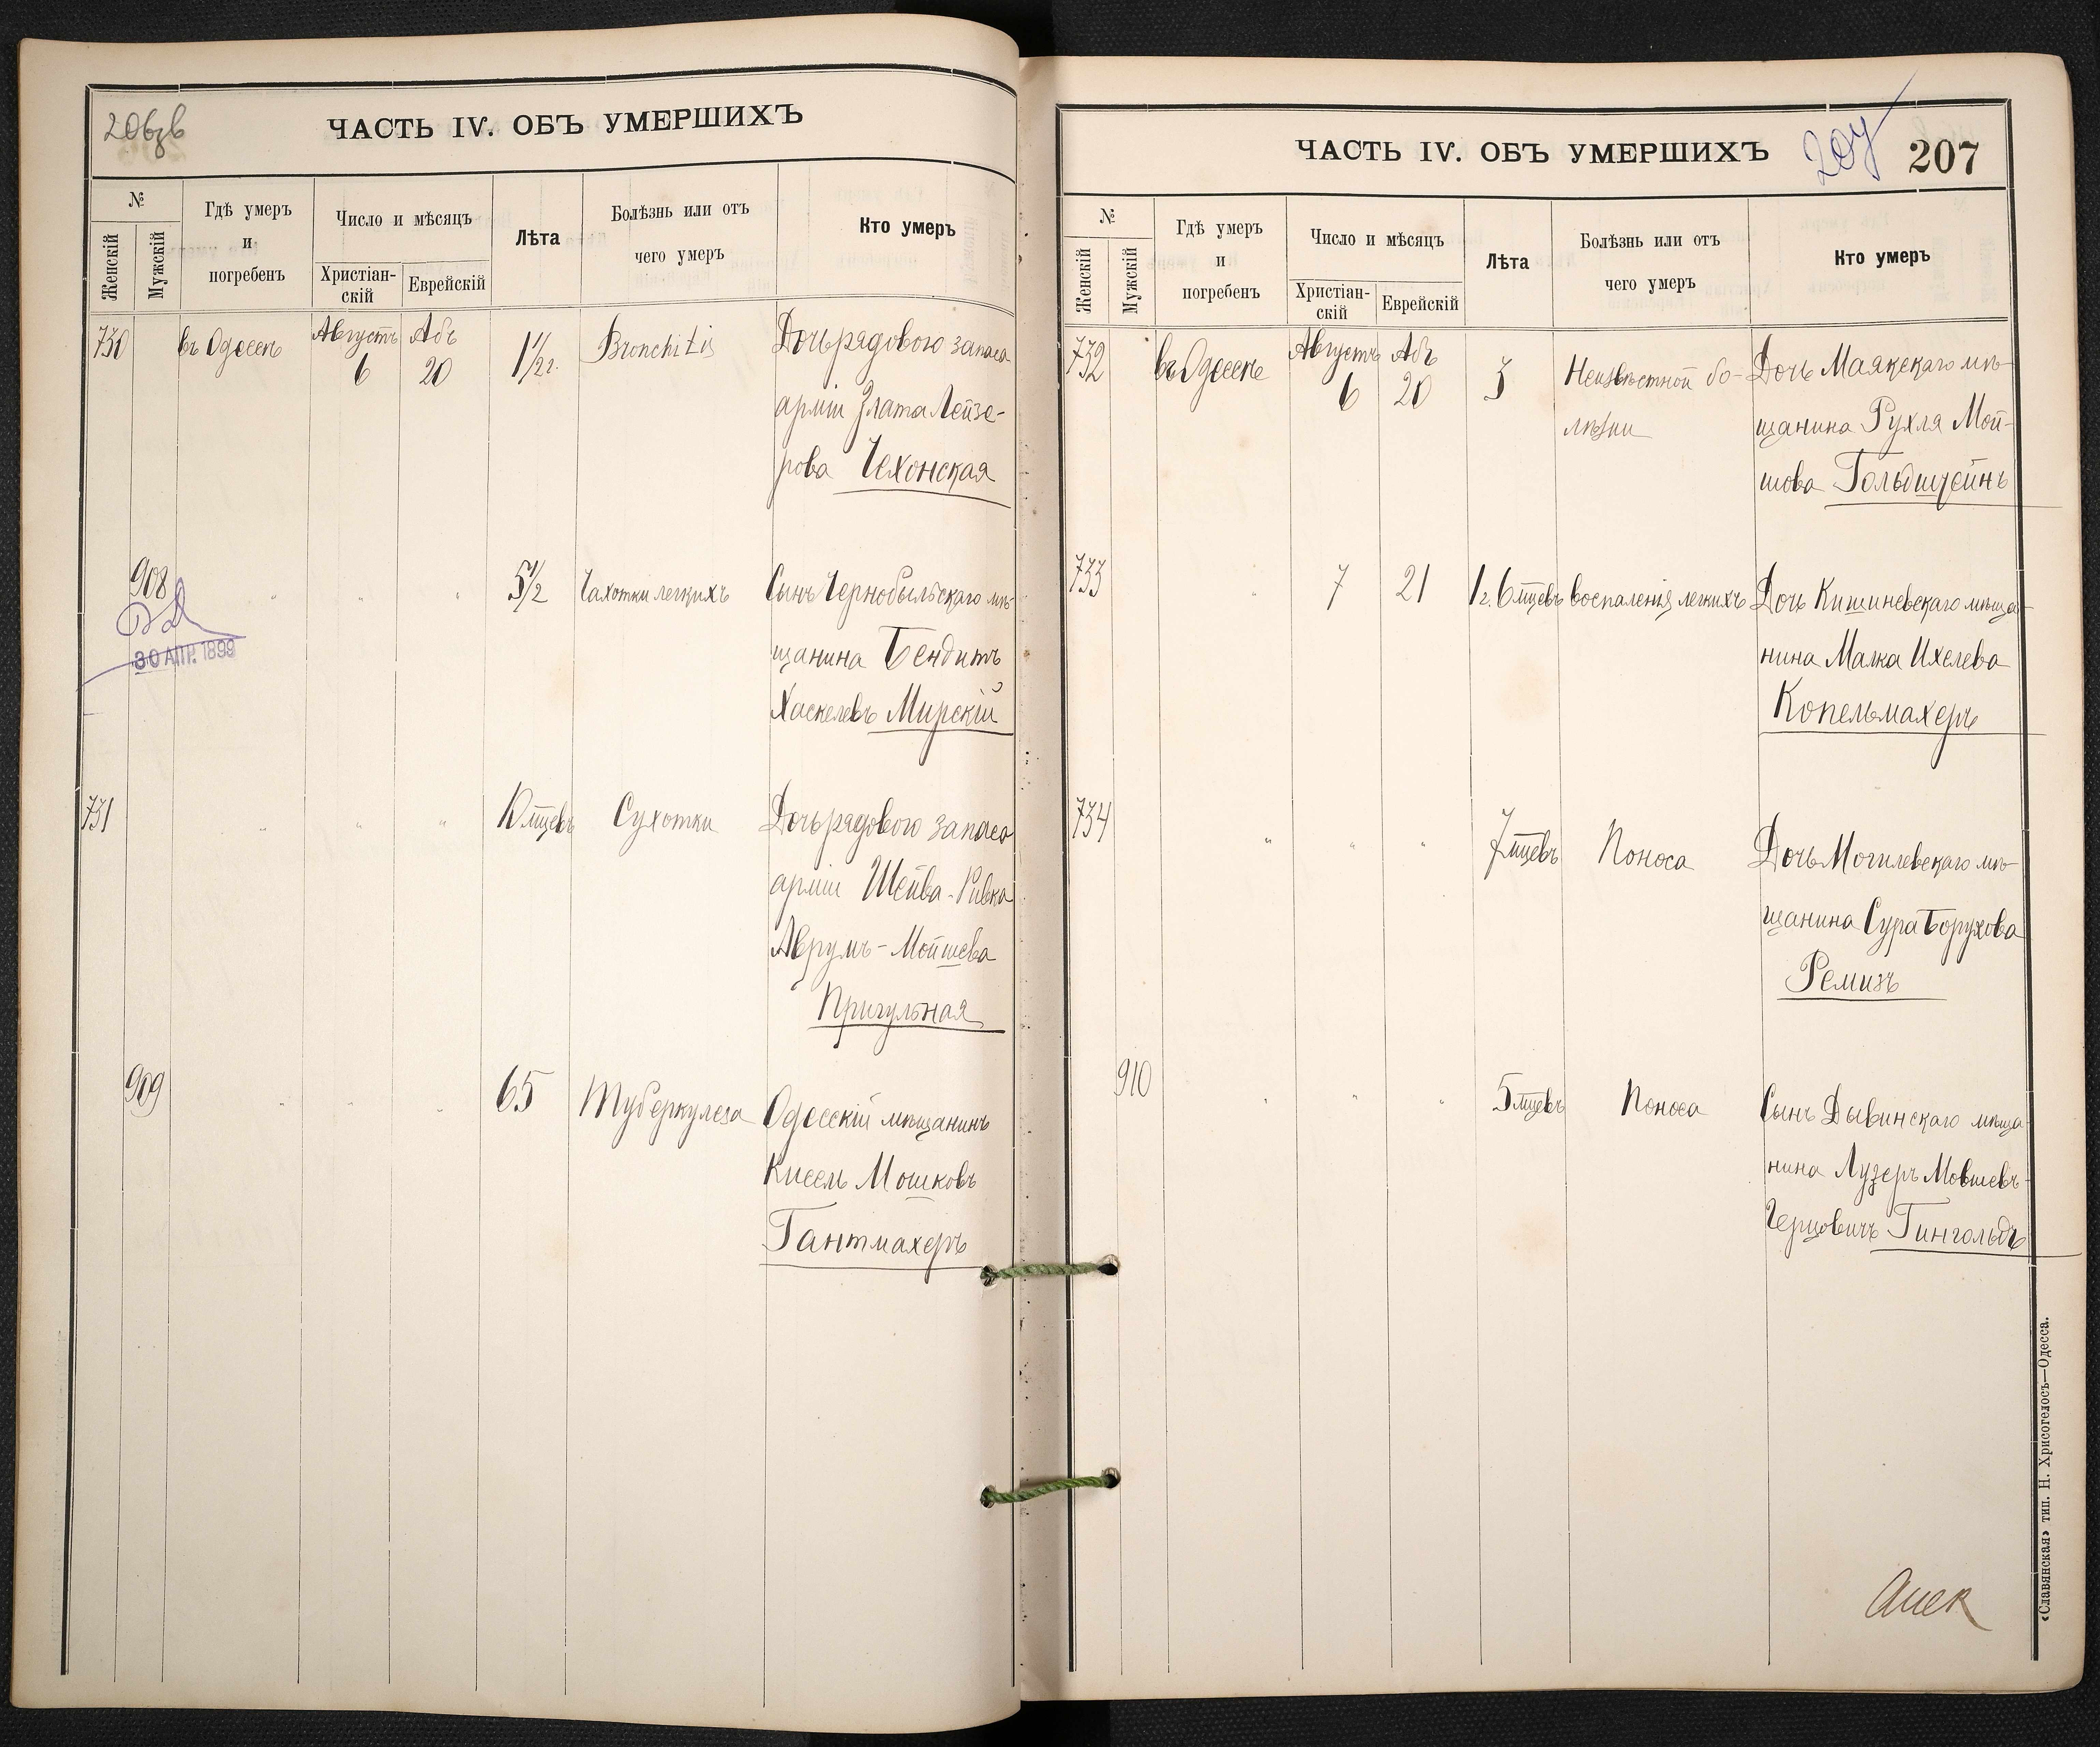 206зв
ЧАСТЬ IV. ОБЪ УМЕРШИХЪ
№
Женскій
Мужскій
Гдѣ умеръ
и
погребенъ
Число и мѣсяцъ
Христіан-
скій
Еврейскій
Лѣта
Болѣзнь или отъ
чего умеръ
Кто умеръ
730 въ Одессѣ Августъ Абъ 1½ г. Bronchitis Дочь рядового запаса
6 20
арміи Злата Лейзе-
рова Чехонская
908 " " " 5½ Чахотки легкихъ Сынъ Чернобыльскаго мѣ-
30 АПР. 1899
щанина Бендитъ
Хаскелевъ Мирскій
731 " " " 10 мцевъ Сухотки Дочь рядового запаса
арміи Шейва-Ривка
Аврумъ-Мойшева
Пригульная
909 " " " 65 Туберкулеза Одесскій мѣщанинъ
Кисель Мошковъ
Гантмахеръ
ЧАСТЬ IV. ОБЪ УМЕРШИХЪ
207
207
№
Женскій
Мужскій
Гдѣ умеръ
и
погребенъ
Число и мѣсяцъ
Христіан-
скій
Еврейскій
Лѣта
Болѣзнь или отъ
чего умеръ
Кто умеръ
732 въ Одессѣ Августъ Абъ 3 Неизвѣстной бо- Дочь Маякскаго мѣ-
6 20
лѣзни щанина Рухля Мой-
шова Гольдштейнъ
733 " 7 21 1 г. 6 мцевъ воспаленія легкихъ Дочь Кишиневскаго мѣща-
нина Малка Ихелева
Копельмахеръ
734 " " " 7 мцевъ Поноса Дочь Могилевскаго мѣ-
щанина Сура Борухова
Ремизъ
910 " " " 5 мцевъ Поноса Сынъ Дывинскаго мѣща-
нина Лузеръ Мовшевъ-
Герцовичъ Гингольдъ
«Славянская» тип. Н. Хрисогелосъ—Одесса.